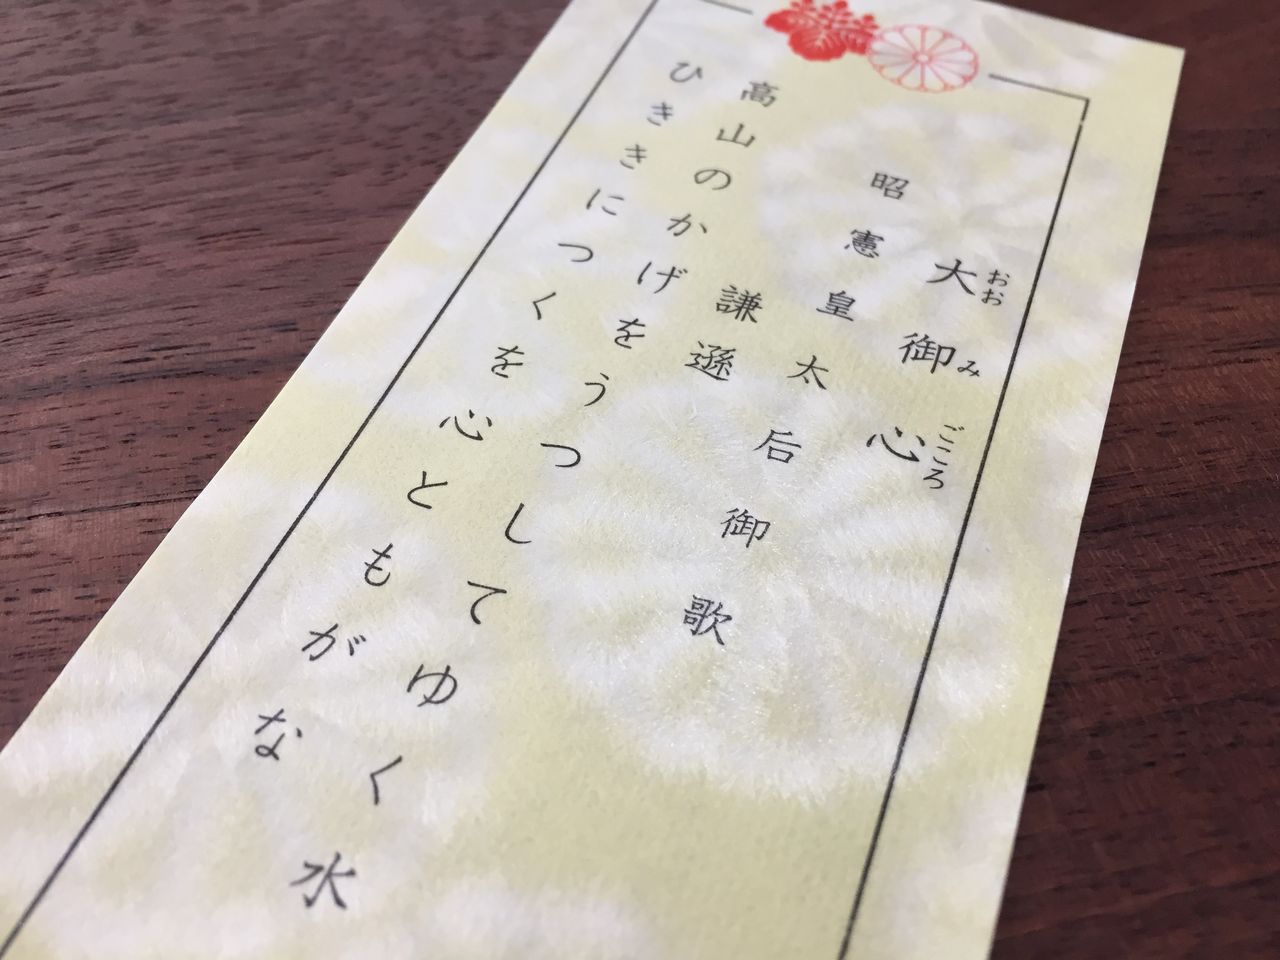 大御心
おおみごころ
昭憲皇太后御歌
謙遜
高山のかげをうつしてゆく水
ひききにつくを心ともがな